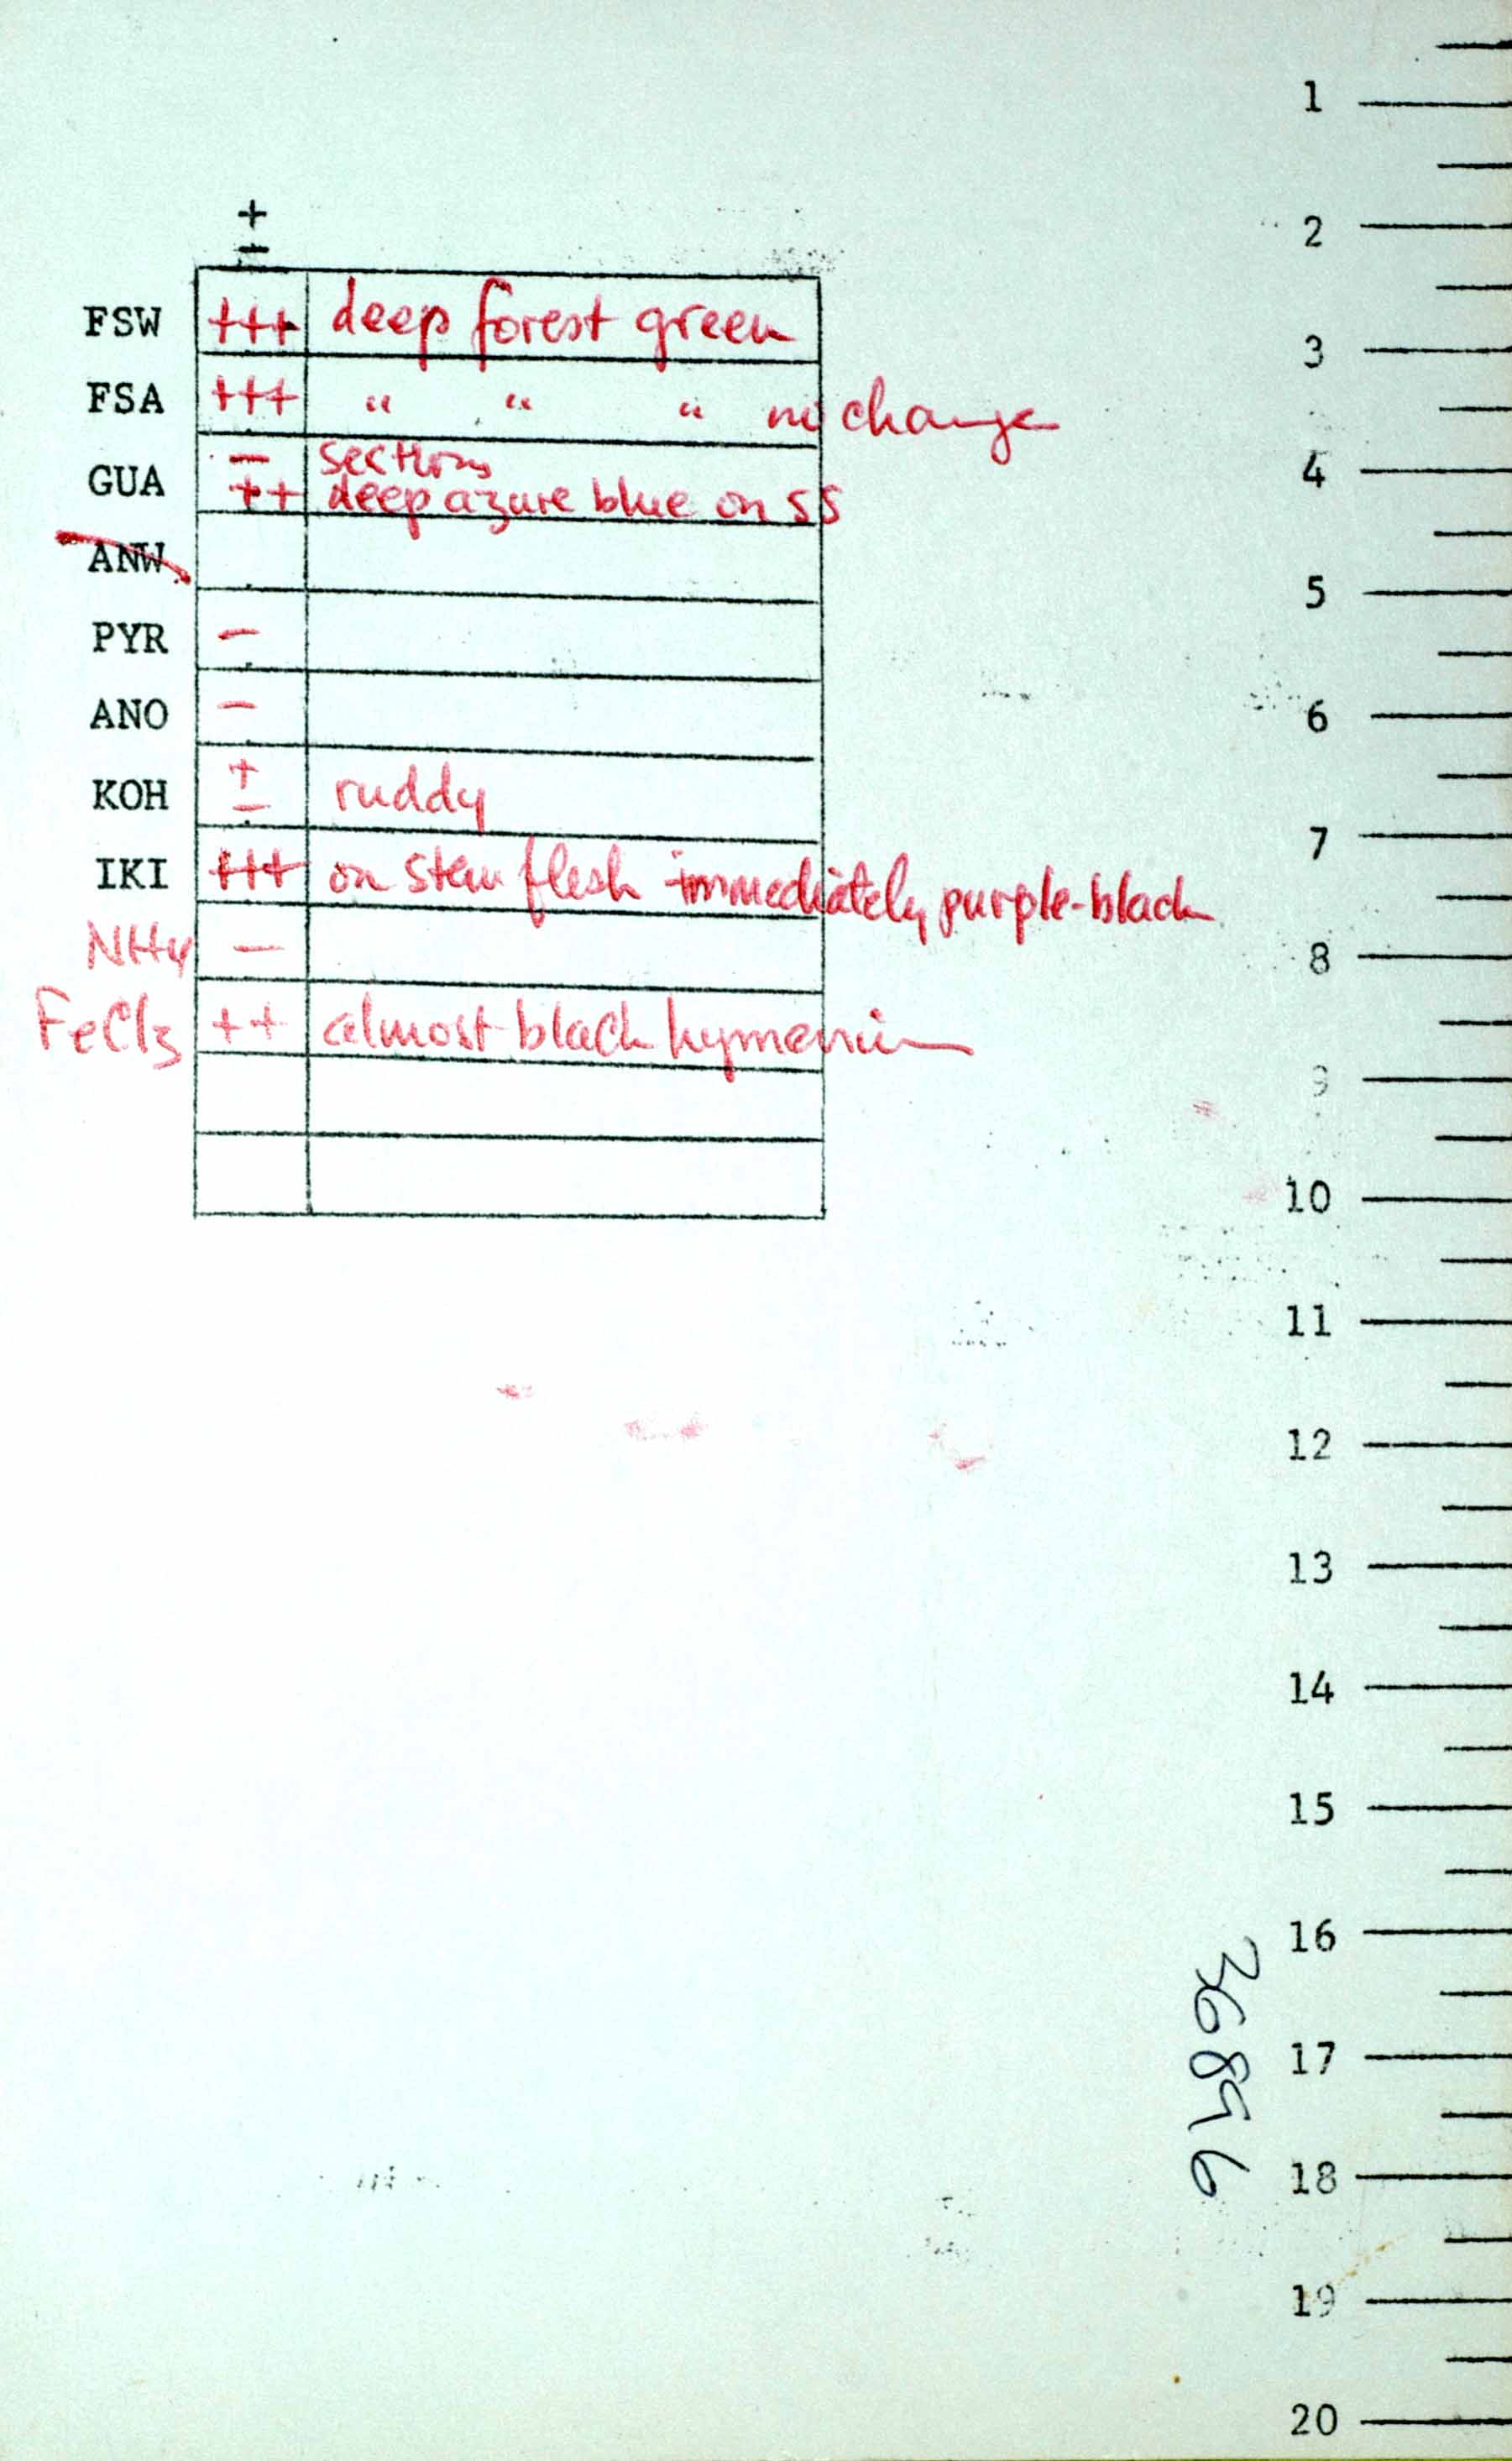 ±
FSW +++ deep forest green
FSA +++ " " " no change
GUA − sections
++ deep azure blue on SS
ANW
PYR −
ANO −
KOH ± ruddy
IKI +++ on stem flesh immediately purple-black
NH4 −
FeCl3 ++ almost black hymenium
1
2
3
4
5
6
7
8
9
10
11
12
13
14
15
16
17
18
19
20
36896